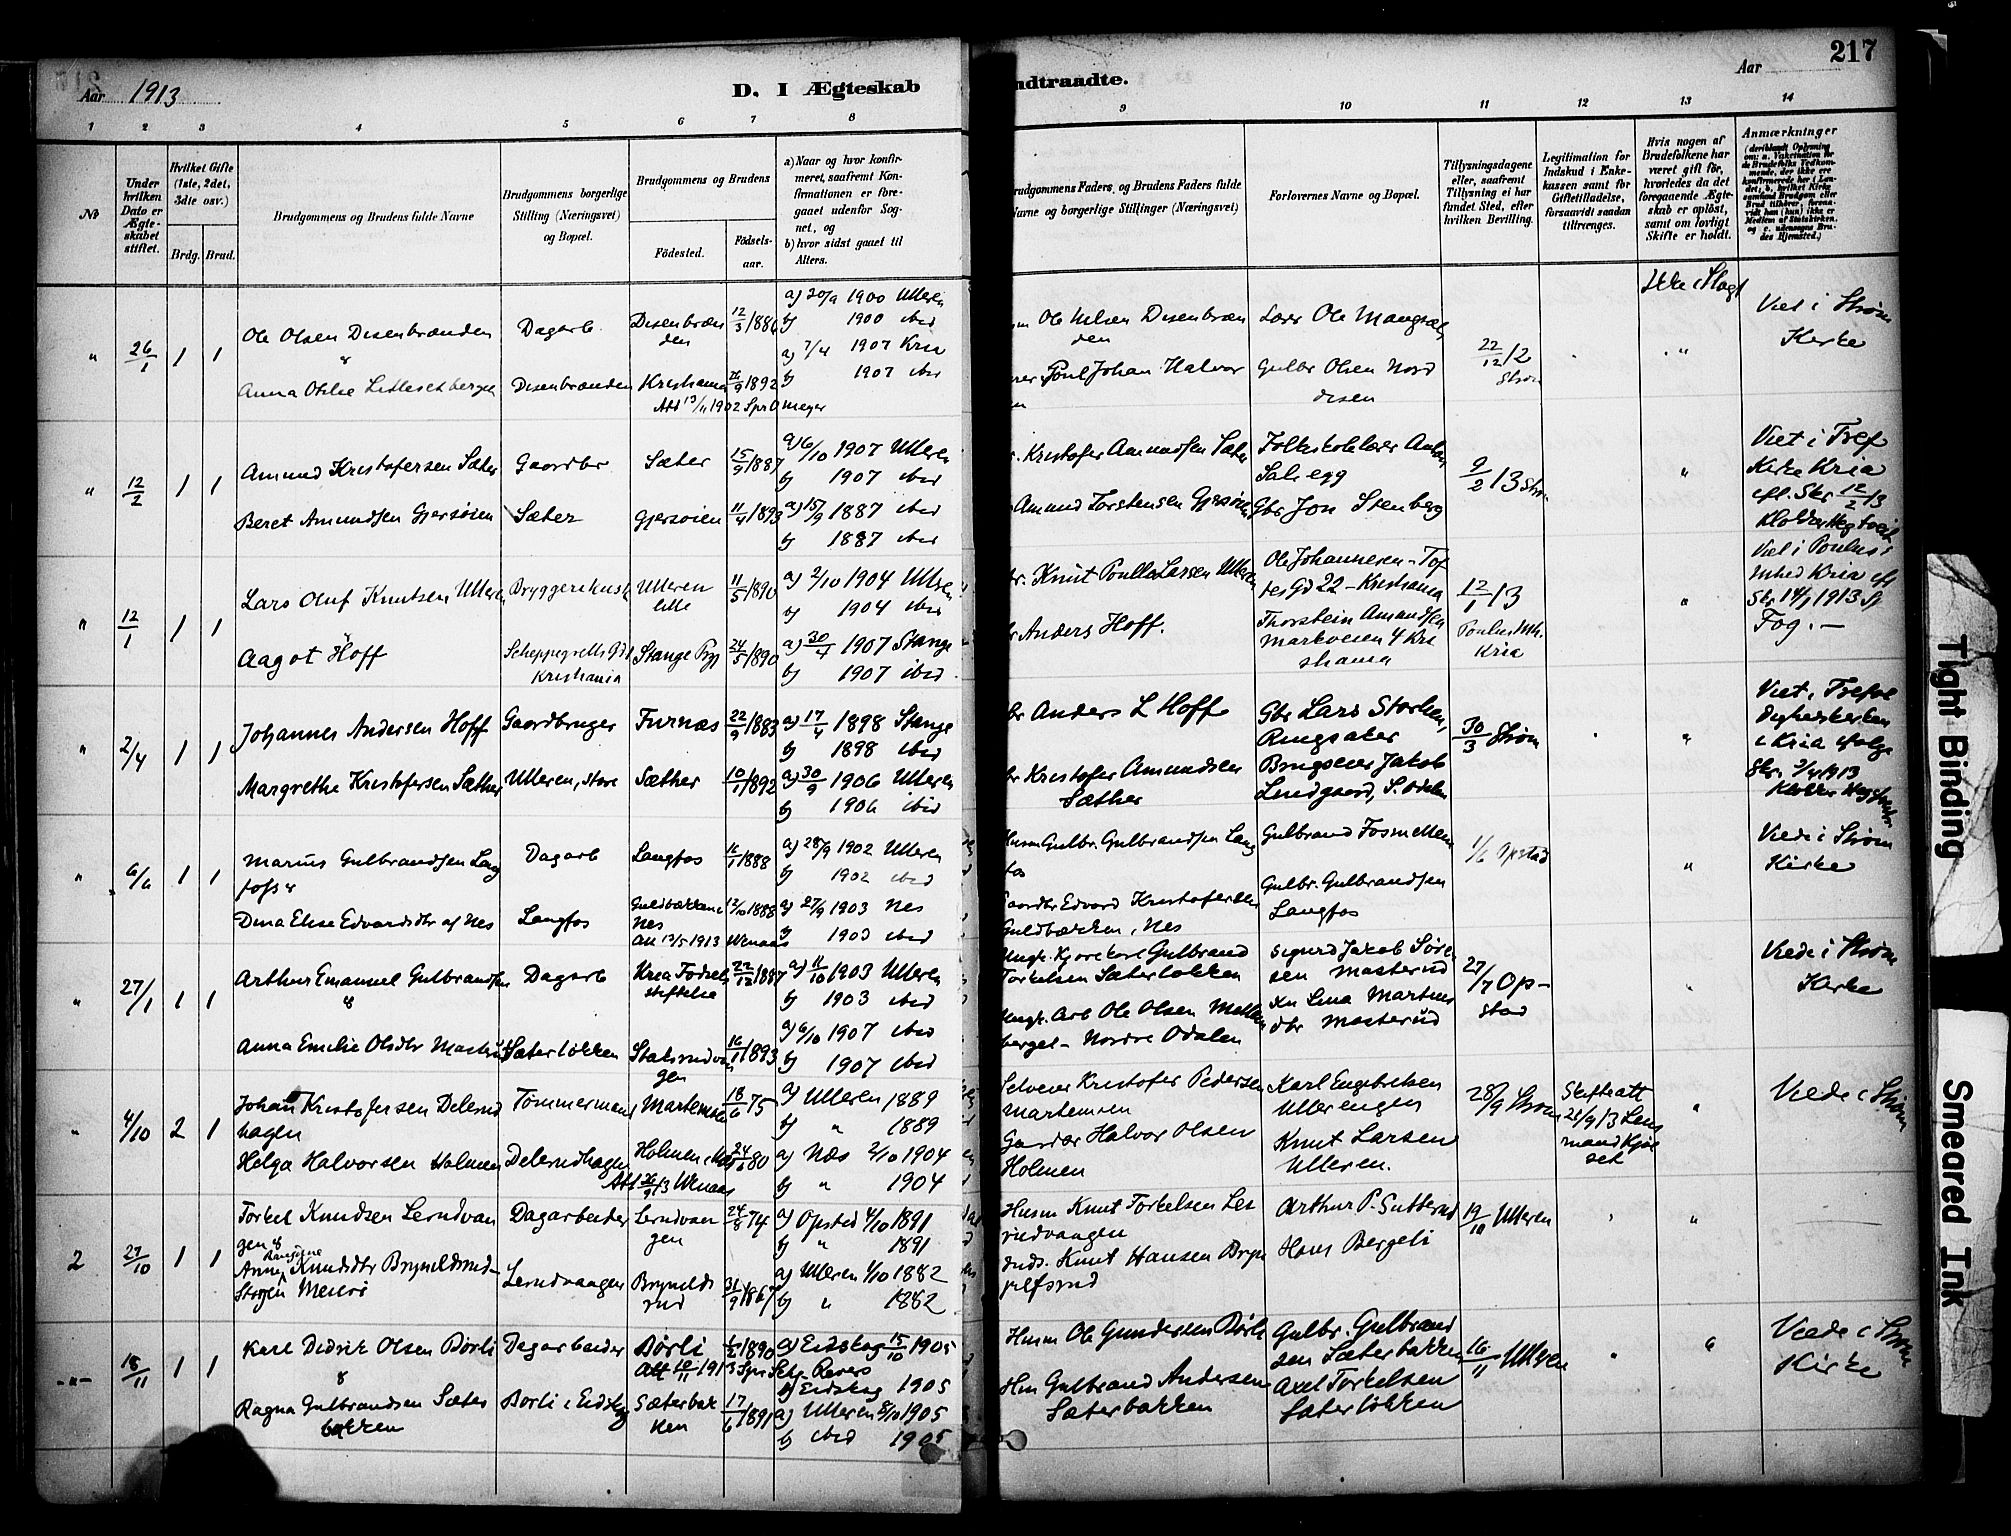 217
Aar 1913
D. I Ægteskab
indtraadte.
Aar
1 2 3 4 5 6 7 8 9 10 11 12 13 14
No
Under hvilken Dato er Ægteskabet stiftet.
Hvilket Gifte (1ste, 2det, 3die osv.)
Brdg. Brud.
Brudgommens og Brudens fulde Navne
Brudgommens borgerlige Stilling (Næringsvei) og Bopæl.
Brudgommens og Brudens
Fødested.
Fødselsaar.
a) Naar og hvor konfirmeret, saafremt Konfirmationen er foregaaet udenfor Sognet, og
b) hvor sidst gaaet til Alters.
Brudgommens Faders, og Brudens Faders fulde Navne og borgerlige Stillinger (Næringsvei)
Forlovernes Navne og Bopæl.
Tillysningsdagene eller, saafremt Tillysning ei har fundet Sted, efter hvilken Bevilling.
Legitimation for Indskud i Enkekassen samt for Giftetilladelse, forsaavidt saadan tiltrænges.
Hvis nogen af Brudefolkene har været gift før, hvorledes da det foregaaende Ægteskab er opløst, samt om lovligt Skifte er holdt.
Anmærkninger
" 26/1 1 1
Ole Olsen Disenbrænden
&
Anna Otilie Litleset bergen
Dagarb
Disenbrænden
Disenbrænden
12/3/1886
Kristiania 26/9 1892
Att 13/11 1902 Spr O Meyer
a) 20/9 1900 Ulleren
b) 1900 ibid
a) 7/4 1907 Kria
b) 1907 ibid
Ole Nilsen Disenbrænden
Poul Johan Halvor
Lærer Ole Mangset
Gulbr Olsen Norddisen
22/12 12 Strøm
Ikke i Slægt
Viet i Strøm Kirke
" 12/2 1 1
Amund Kristofersen Sæter
Beret Amundsen Gjersøien
Gaardbr
Sæter
Sæter 15/9/1887
Gjersøien 11/4/1893
a) 6/10 1907 Ulleren
b) 1907 ibid
a) 15/9 1887 ibid
b) 1887 ibid
Kristofer Amundsen Sæter
Amund Torstensen Gjersøien
Folkeskolelærer Anton Salsegg
Gbr Jon Stenberg
9/2 13 Strøm
"
Viet i Tref Kirke Kria efl. Skr 12/2 13
" 12/1 1 1
Lars Oluf Knutsen Ulleren
&
Aagot Hoff
Scheppegrells Gd 1 Kristiania
Ulleren lille 11/5/1890
Stange Pgj 24/5/1890
a) 2/10 1904 Ulleren
b) 1904 ibid
a) 30/4 1907 Stange
b) 1907 ibid
Knut Poulla Larsen Ulleren
Anders Hoff.
Ole Johannesen - Toftes Gd 22 - Kristiania
Thorstein Amundsen Markveien 4 Kristiania
12/1 13
Paulus Mh. Kria
"
Viet i Paulus Mhed Kria
Skr 14/1 1913
" 2/4 1 1
Johannes Andersen Hoff
Margrethe Kristofersen Sæther
Gaardbruger
Ulleren, store
Furnæs 22/9/1883
Sæther 10/1/1892
a) 17/4 1898 Stange
b) 1898 ibid
a) 30/9 1906 Ulleren
b) 1906 ibid
Anders L Hoff
Kristofer Amundsen Sæther
Gbr Lars Storken, Ringsaker
Brugseier Jakob Lundgaard, S. Odalen
30/3 Strøm
"
Viet i Trefoldighedskirken i Kria ifølge Skr.
" 6/6 1 1
Marius Gulbrandsen Langfoss &
Dina Elise Edvardsdtr af Nes
Dagarb
Langfos
Langfos 16/1/1888
Guldbækken i Nes 12/10 1888
Att 13/5 1913
a) 28/9 1902 Ulleren
b) 1902 ibid
a) 27/9 1903 Nes
b) 1903 ibid
Husm Gulbr. Gulbrandsen Langfos
Gaardbr Edvard Kristofersen Guldbækken, Nes
Gulbrand Fosmellem
Gulbr. Gulbrandsen Langfos
1/6 Opstad
"
Viede i Strøm Kirke
" 27/1 1 1
Arthur Emanuel Gulbrandsen
&
Anna Emilie Olsdtr Masterud
Dagarb
Sæterløkken
Kria Fødselsstiftelse 22/12/1887
Stalsrudvangen 16/11/1893
a) 11/10 1903 Ulleren
b) 1903 ibid
a) 6/10 1907 ibid
b) 1907 ibid
Ungk. Kjørekarl Gulbrand Torkelsen Sæterløkken
Ungk. Arb Ole Olsen Mellemberget - Nordre Odalen
Sigurd Jakob Sørensen Masterud
Kn Lina Martinsdtr Masterud
27/7 Opstad
Viede i Strøm Kirke
" 4/10 2 1
Johan Kristofersen Delerudhagen
Helga Halvorsen Holmen
Tømmermand
Delerudhagen
Martemoen 18/6 75
Holmen i Nes 24/6 80
Att 26/9 13 Wenaas
a) Ulleren 1889
b) " 1889
a) Næs 2/10 1904
b) " 1904
Selveier Kristofer Pedersen Martemoen
Gaardbr Halvor Olsen Holmen
Karl Engebretsen Ullerengen
Knut Larsen Ulleren.
28/9 Strøm
Skifteatt 21/9 13 Lensmand Kjølset
"
Viede i Strøm
2 27/10 1 1
Torkel Knudsen Lerudvangen &
Anne Karoline Knudsdtr Brynildsrud-Strøjen Meierø
Dagarbeider
Lerudvaangen
Lerudvangen 24/8 74
Brynildsrud 31/9/1867
a) Opstad 4/10 1891
b) " 1891
a) Ulleren 1/10 1882
b) " 1882
Husm Knut Torkelsen Lerudvangen
Inds. Knut Hansen Brynilfsrud
Arthur P. Sutterud
Hans Bergeli
19/10 Ulleren
"
-"- 18/11 1 1
Karl Didrik Olsen Børli
&
Ragna Gulbrandsen Sæterbakken
Dagarbeider
Børli i Eidskog
Børli 1/2 1890
Att 10/11 1913 Spr. Sctr. Revers
Sæterbakken 17/6/1891
a) Eidskog 15/10 1905
b) Eidskog 1905
a) Ulleren 8/10 1905
b) ibid 1905
Husm Ole Gundersen Børli
Hm Gulbrand Andersen Sæterbakken
Gulbr. Gulbrandsen Sæterbakken
Axel Torkelsen Sæterløkken
16/11 Ulleren
"
Viede i Strøm Kirke
Tight Binding
Smeared Ink